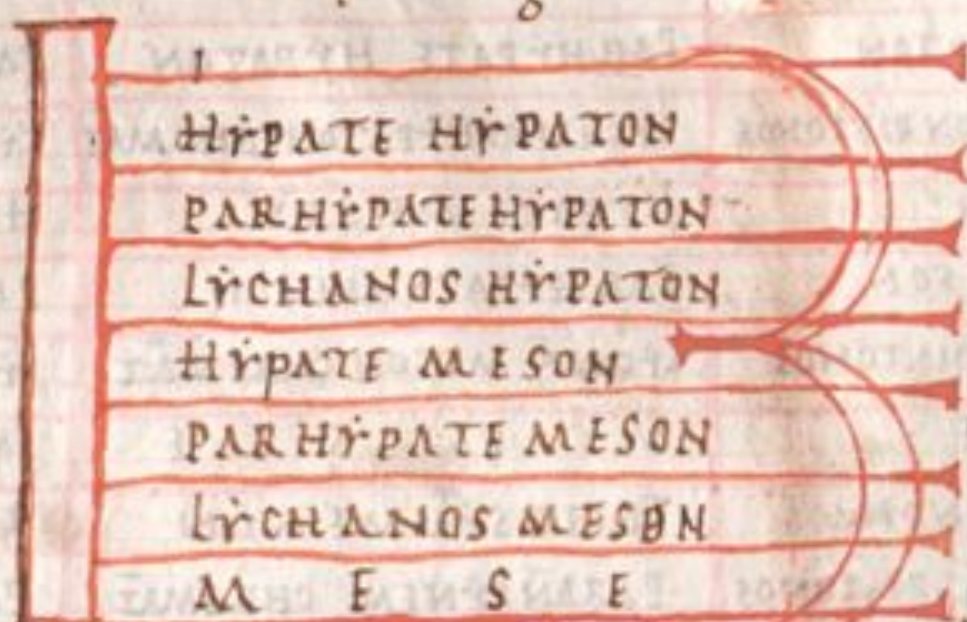 HẎPATE HẎPATON
PARHẎPATE HẎPATON
LẎCHANOS HẎPATON
HẎPATE MESON
PARHẎPATE MESON
LẎCHANOS MESON
M E S E